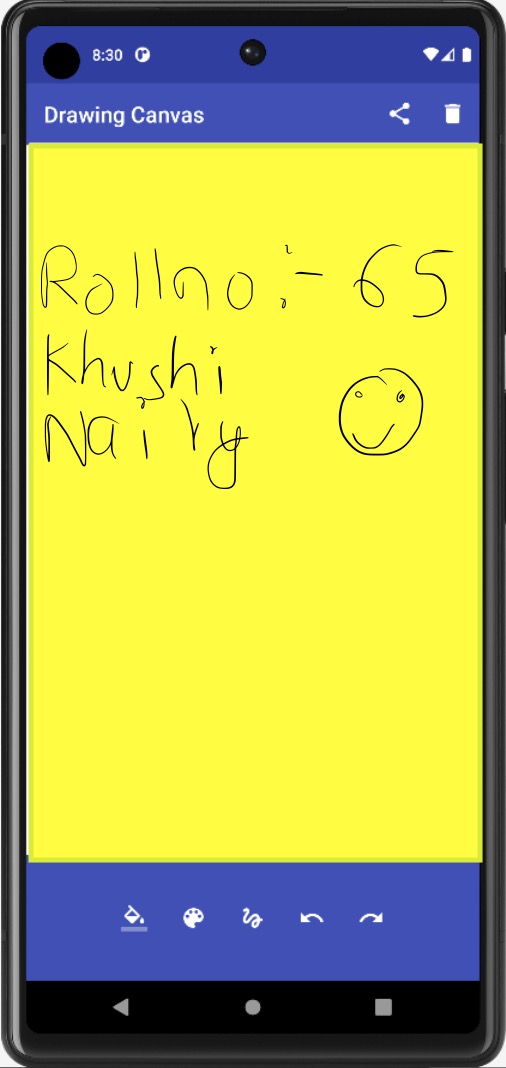 8:30
Drawing Canvas
Rollno :- 65
Khushi
Naity